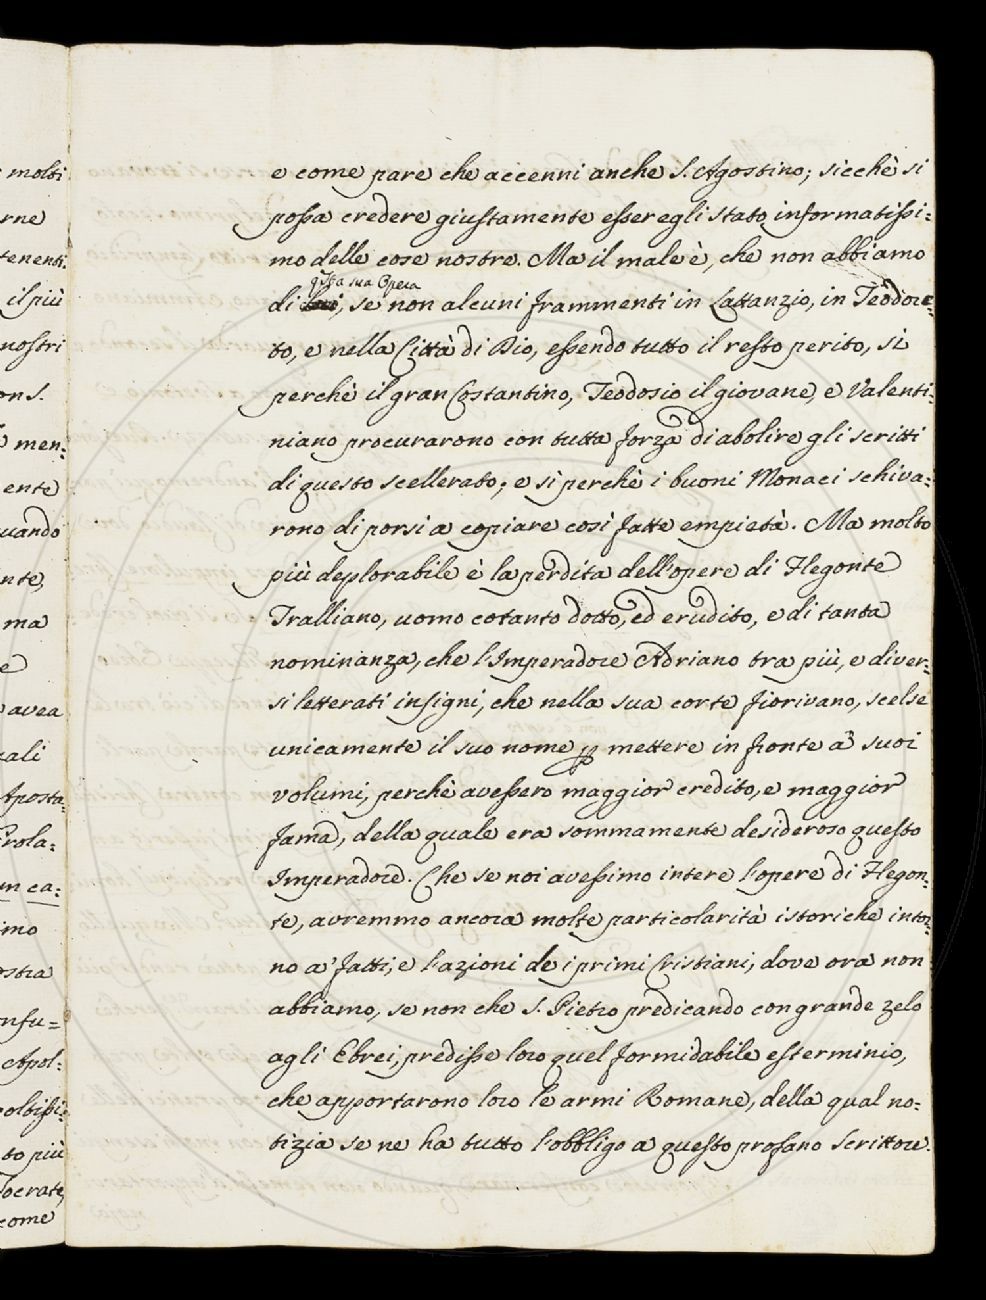 molti
rne
tenenti.
il più
nostri
on S.
men:
ente
uando
nte,
ma
e
avea
ali
Aposta:
rola:
un ca:
imo
ostra
nfu=
Apol:
oltissi:
to più
ocrate,
come
e come pare che accenni anche S. Agostino; sicchè si
possa credere giustamente esser egli stato informatissi:
mo delle cose nostre. Ma il male è, che non abbiamo
qsta sua Opera
di lui, se non alcuni frammenti in Lattanzio, in Teodore:
to, e nella Città di Dio, essendo tutto il resto perito, sì
perchè il gran Costantino, Teodosio il giovane, e Valenti:
niano procurarono con tutta forza di abolire gli scritti
di questo scellerato; e sì perchè i buoni Monaci schiva:
rono di porsi a copiare così fatte empietà. Ma molto
più deplorabile è la perdita dell'opere di Flegonte
Tralliano, uomo cotanto dotto, ed erudito, e di tanta
nominanza, che l'Imperadore Adriano tra più, e diver:
si letterati insigni, che nella sua corte fiorivano, scelse
unicamente il suo nome p mettere in fronte a' suoi
volumi, perchè avessero maggior credito, e maggior
fama, della quale era sommamente desideroso questo
Imperadore. Che se noi avessimo intere l'opere di Flegon:
te, avremmo ancora molte particolarità istoriche intor:
no a' fatti, e l'azioni de i primi Cristiani, dove ora non
abbiamo, se non che S. Pietro predicando con grande zelo
agli Ebrei, predisse loro quel formidabile esterminio,
che apportarono loro le armi Romane, della qual no:
tizia se ne ha tutto l'obbligo a questo profano Scrittore.